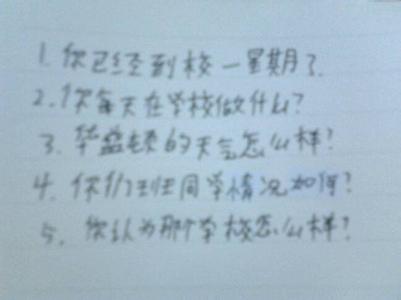 1. 你已经到校一星期了.
2. 你每天在学校做什么?
3. 华盛顿的天气怎么样?
4. 你们班同学情况如何?
5. 你认为那个学校怎么样?